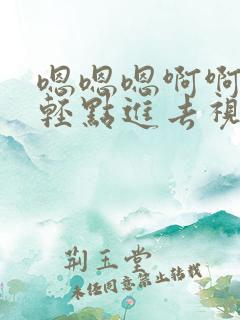 嗯嗯嗯啊啊
轻點進去視
荆玉堂
未任同意禁止转载